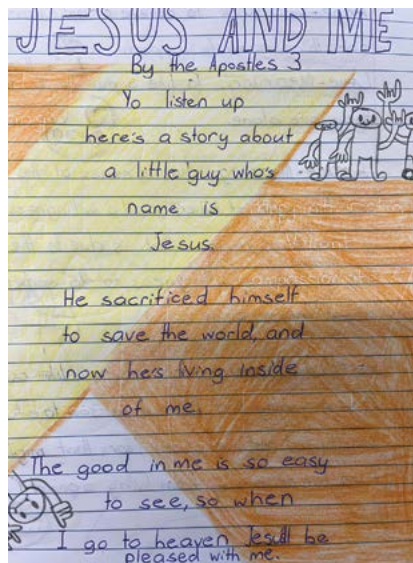 JESUS AND ME
By the Apostles 3
Yo listen up
here's a story about
a little guy who's
name is
Jesus.
He sacrificed himself
to save the world, and
now he's living inside
of me.
The good in me is so easy
to see, so when
I go to heaven Jesus'll be
pleased with me.